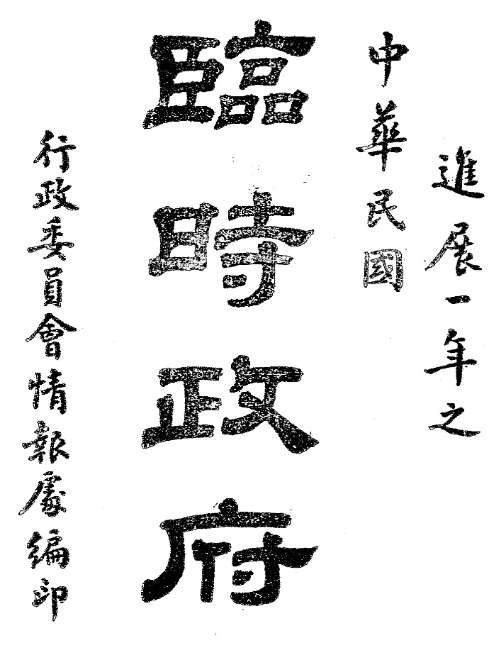 進展一年之
中華民國
臨時政府
行政委員會情報處編印